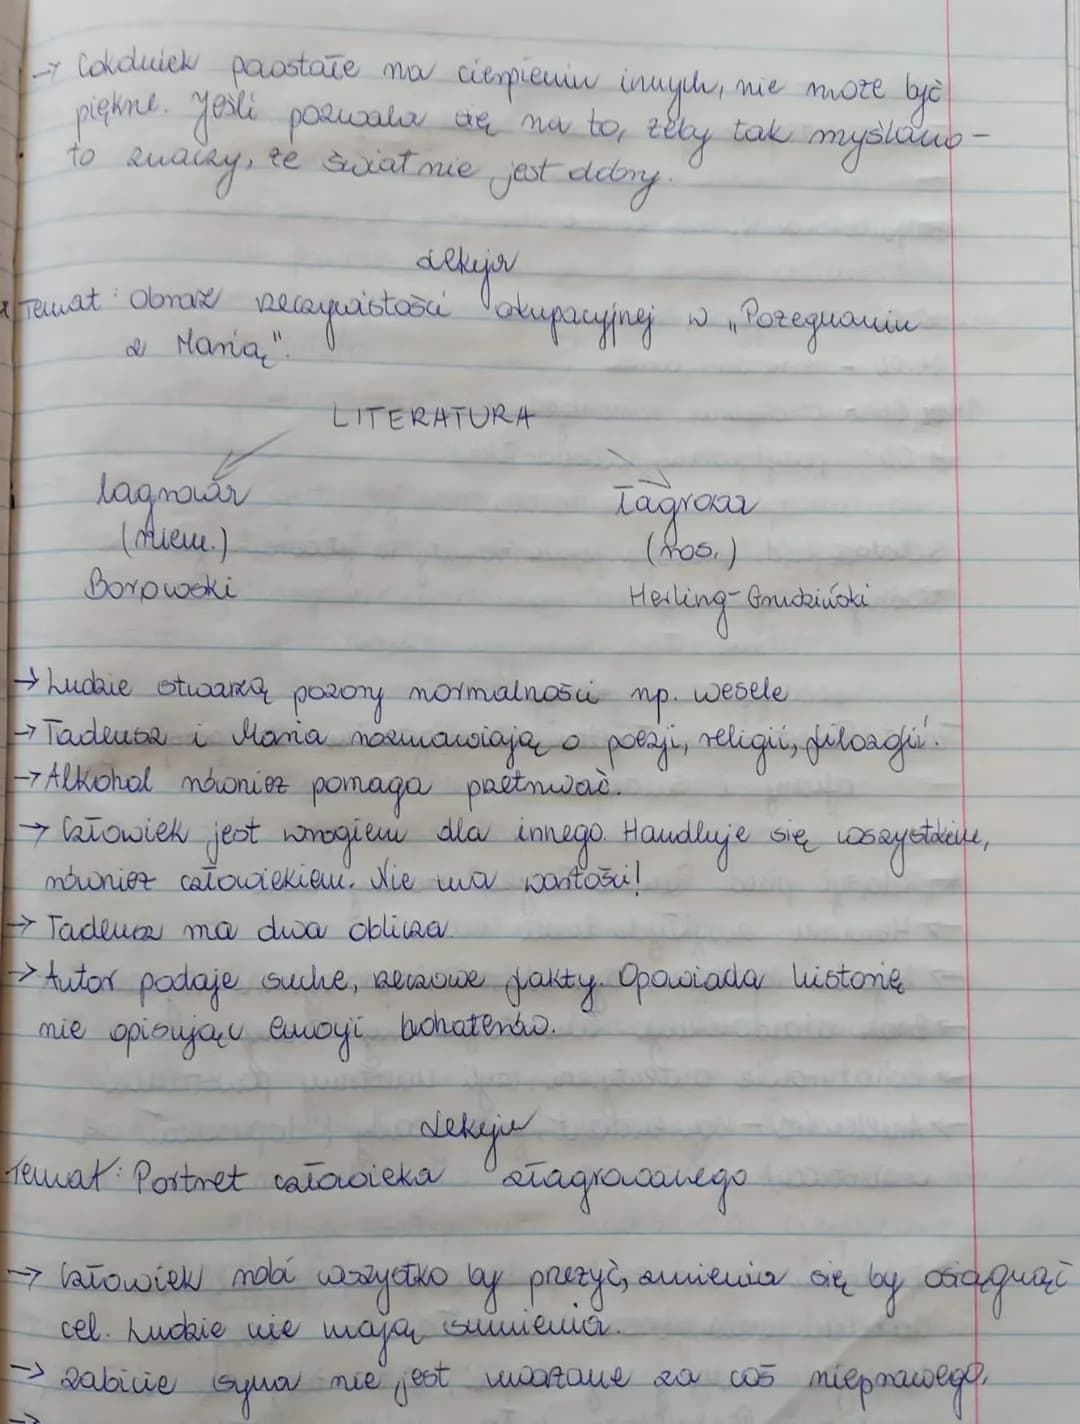 → Cokolwiek powstałe na cierpieniu innych, nie może być
piękne. Jeśli pozwala się na to, żeby tak myślano -
to znaczy, że świat nie jest dobry.
Lekcja
Temat: Obraz rzeczywistości okupacyjnej w „Pożegnaniu
z Marią".
LITERATURA
lagrowa
(niem.)
Borowski
łagrowa
(ros.)
Herling-Grudziński
→ Ludzie stwarzą pozory normalności np. wesele
→ Tadeusz i Maria rozmawiają o poezji, religii, filozofii.
→ Alkohol również pomaga przetrwać.
→ Człowiek jest wrogiem dla innego. Handluje się wszystkim,
również człowiekiem. Nie ma wartości!
→ Tadeusz ma dwa oblicza.
→ Autor podaje suche, rzeczowe fakty. Opowiada historię
nie opisując emocji bohaterów.
Lekcja
Temat: Portret człowieka złagrowanego
→ Człowiek robi wszystko by przeżyć, zmienia się by osiągnąć
cel. Ludzie nie mają sumienia.
→ Zabicie syna nie jest uważane za coś nieprawego.
→